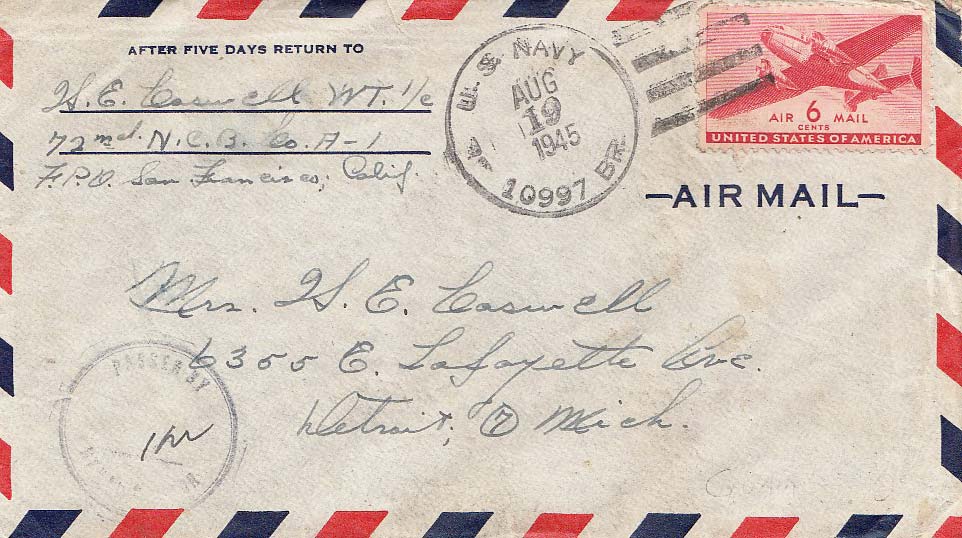 AFTER FIVE DAYS RETURN TO
H. E. Caswell WT. 1/c
72nd. N.C.B. Co. A-1
F.P.O. San Francisco, Calif.
U. S. NAVY
AUG
19
1945
10997 BR.
AIR 6 MAIL
CENTS
UNITED STATES OF AMERICA
—AIR MAIL—
Mrs. H. E. Caswell
6355 E. Lafayette Ave.
Detroit, 7 Mich.
PASSED BY
Guam